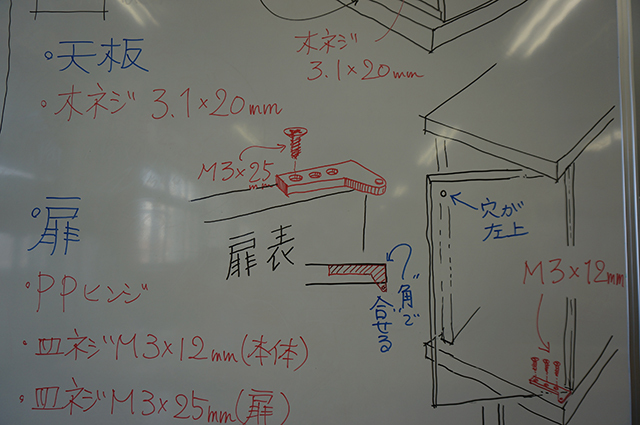 木ネジ
3.1×20mm
・天板
・木ネジ 3.1×20mm
M3×25mm
・扉
扉表
・PPヒンジ
・皿ネジM3×12mm(本体)
・皿ネジM3×25mm(扉)
角で
合せる
穴が
左上
M3×12mm